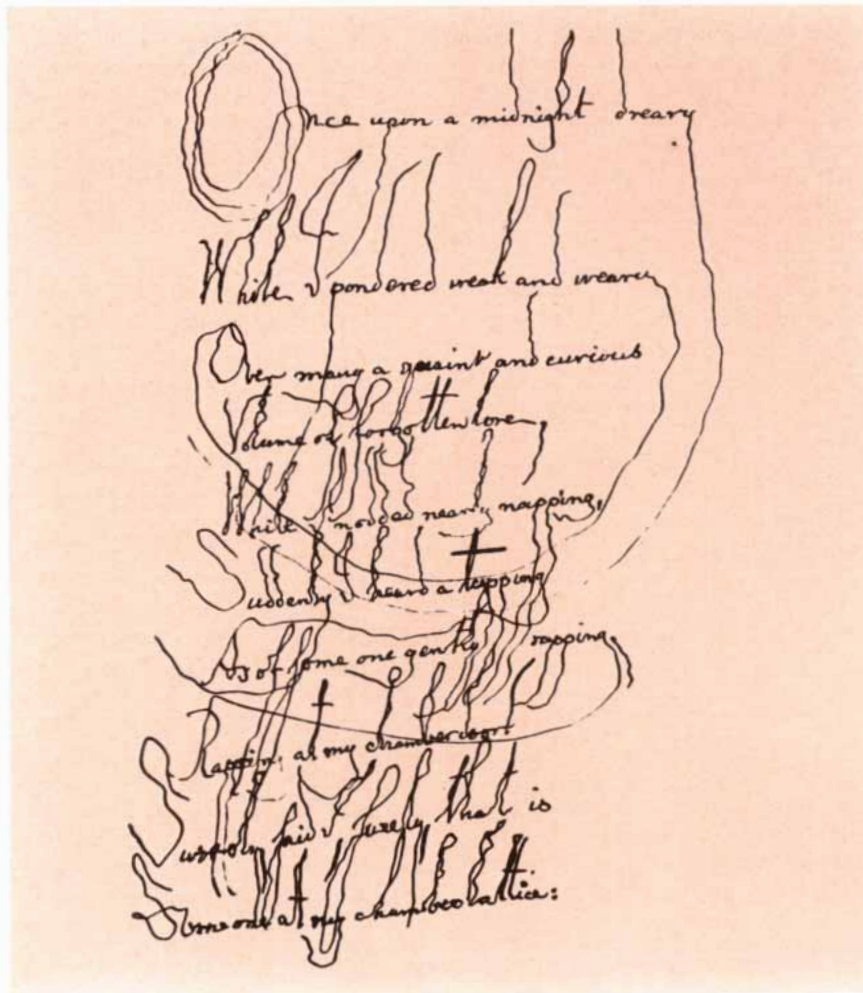 Once upon a midnight dreary
While I pondered weak and weary
Over many a quaint and curious
Volume of forgotten lore,
While I nodded nearly napping,
Suddenly I heard a tapping
As of some one gently rapping,
Rapping at my chamber door.
said I surely that is
Some one at my chamber lattice: